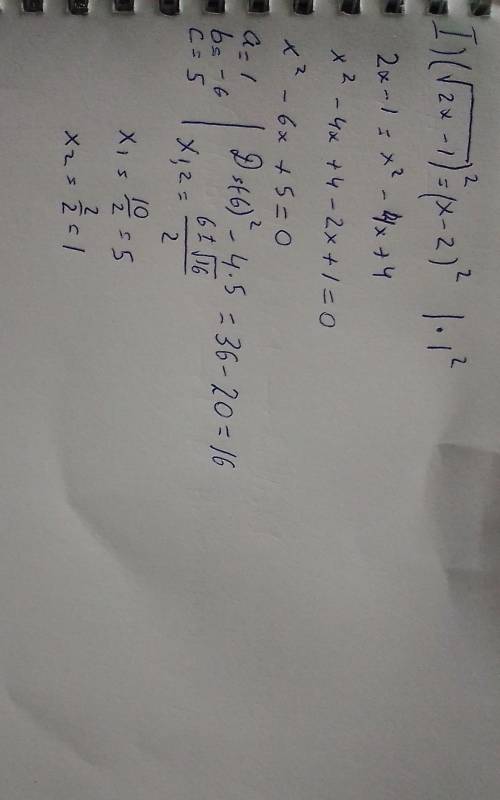 I) (√2x-1)² = (x-2)² |·|²
2x-1 = x² - 4x + 4
x² - 4x + 4 - 2x + 1 = 0
x² - 6x + 5 = 0
a = 1
b = -6 | D = (6)² - 4·5 = 36 - 20 = 16
c = 5
x1,2 = 6±√16 / 2
x1 = 10/2 = 5
x2 = 2/2 = 1